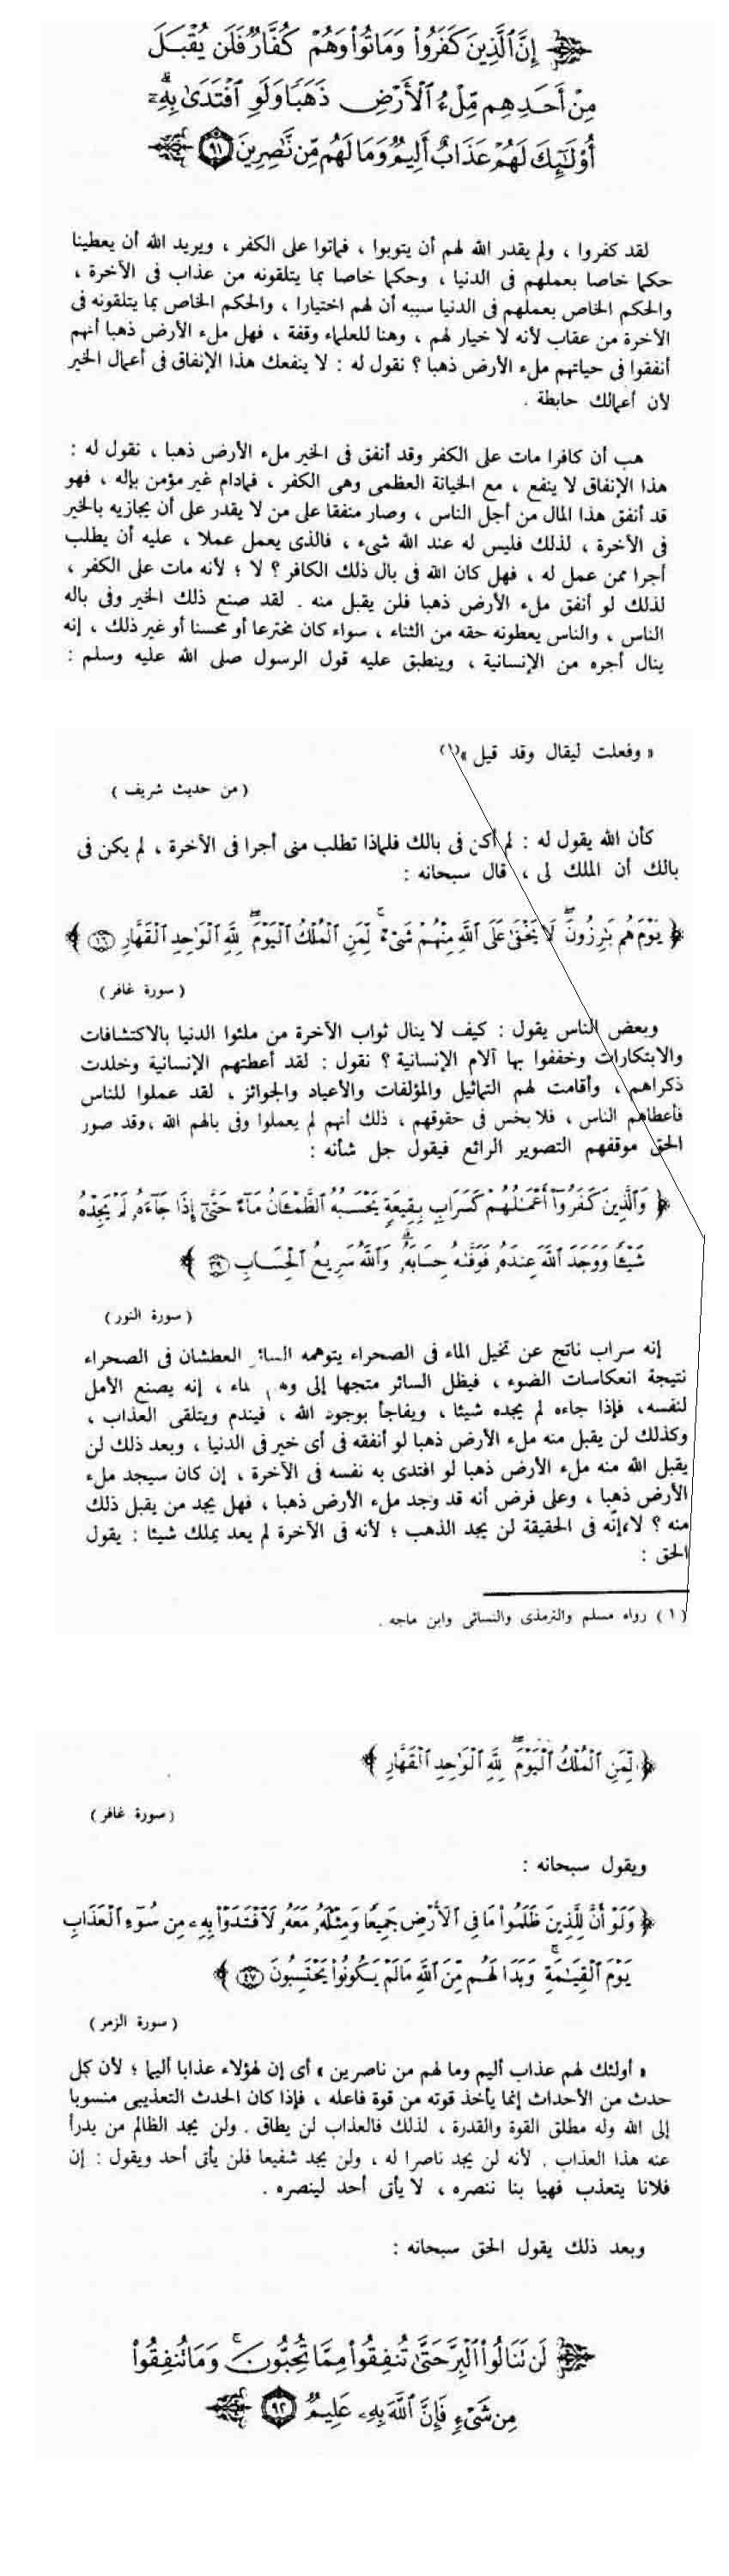 إِنَّ ٱلَّذِينَ كَفَرُوا۟ وَمَاتُوا۟ وَهُمْ كُفَّارٌ فَلَن يُقْبَلَ
مِنْ أَحَدِهِم مِّلْءُ ٱلْأَرْضِ ذَهَبًا وَلَوِ ٱفْتَدَىٰ بِهِۦٓ
أُو۟لَٰٓئِكَ لَهُمْ عَذَابٌ أَلِيمٌ وَمَا لَهُم مِّن نَّٰصِرِينَ ٩١
لقد كفروا ، ولم يقدر الله لهم أن يتوبوا ، فماتوا على الكفر ، ويريد الله أن يعطينا
حكما خاصا بعملهم فى الدنيا ، وحكما خاصا بما يتلقونه من عذاب فى الآخرة ،
والحكم الخاص بعملهم فى الدنيا سببه أن لهم اختيارا ، والحكم الخاص بما يتلقونه فى
الآخرة من عقاب لأنه لا خيار لهم ، وهنا للعلماء وقفة ، فهل ملء الأرض ذهبا أنهم
أنفقوا فى حياتهم ملء الأرض ذهبا ؟ نقول له : لا ينفعك هذا الإنفاق فى أعمال الخير
لأن أعمالك حابطة .
هب أن كافرا مات على الكفر وقد أنفق فى الخير ملء الأرض ذهبا ، نقول له :
هذا الإنفاق لا ينفع ، مع الخيانة العظمى وهى الكفر ، فمادام غير مؤمن بإله ، فهو
قد أنفق هذا المال من أجل الناس ، وصار منفقا على من لا يقدر على أن يجازيه بالخير
فى الآخرة ، لذلك فليس له عند الله شىء ، فالذى يعمل عملا ، عليه أن يطلب
أجرا ممن عمل له ، فهل كان الله فى بال ذلك الكافر ؟ لا ؛ لأنه مات على الكفر ،
لذلك لو أنفق ملء الأرض ذهبا فلن يقبل منه . لقد صنع ذلك الخير وفى باله
الناس ، والناس يعطونه حقه من الثناء ، سواء كان مخترعا أو محسنا أو غير ذلك ، إنه
ينال أجره من الإنسانية ، وينطبق عليه قول الرسول صلى الله عليه وسلم :
« وفعلت ليقال وقد قيل »(١)
( من حديث شريف )
كأن الله يقول له : لم أكن فى بالك فلماذا تطلب منى أجرا فى الآخرة ، لم يكن فى
بالك أن الملك لى ، قال سبحانه :
﴿ يَوْمَ هُم بَٰرِزُونَ ۖ لَا يَخْفَىٰ عَلَى ٱللَّهِ مِنْهُمْ شَىْءٌ ۚ لِّمَنِ ٱلْمُلْكُ ٱلْيَوْمَ ۖ لِلَّهِ ٱلْوَٰحِدِ ٱلْقَهَّارِ ١٦ ﴾
( سورة غافر )
وبعض الناس يقول : كيف لا ينال ثواب الآخرة من ملئوا الدنيا بالاكتشافات
والابتكارات وخففوا بها آلام الإنسانية ؟ نقول : لقد أعطتهم الإنسانية وخلدت
ذكراهم ، وأقامت لهم التماثيل والمؤلفات والأعياد والجوائز ، لقد عملوا للناس
فأعطاهم الناس ، فلا بخس فى حقوقهم ، ذلك أنهم لم يعملوا وفى بالهم الله ، وقد صور
الحق موقفهم التصوير الرائع فيقول جل شأنه :
﴿ وَٱلَّذِينَ كَفَرُوٓا۟ أَعْمَٰلُهُمْ كَسَرَابٍۭ بِقِيعَةٍ يَحْسَبُهُ ٱلظَّمْـَٔانُ مَآءً حَتَّىٰٓ إِذَا جَآءَهُۥ لَمْ يَجِدْهُ
شَيْـًٔا وَوَجَدَ ٱللَّهَ عِندَهُۥ فَوَفَّىٰهُ حِسَابَهُۥ ۗ وَٱللَّهُ سَرِيعُ ٱلْحِسَابِ ٣٩ ﴾
( سورة النور )
إنه سراب ناتج عن تخيل الماء فى الصحراء يتوهمه السائر العطشان فى الصحراء
نتيجة انعكاسات الضوء ، فيظل السائر متجها إلى ، إنه يصنع الأمل
لنفسه ، فإذا جاءه لم يجده شيئا ، ويفاجأ بوجود الله ، فيندم ويتلقى العذاب ،
وكذلك لن يقبل منه ملء الأرض ذهبا لو أنفقه فى أى خير فى الدنيا ، وبعد ذلك لن
يقبل الله منه ملء الأرض ذهبا لو افتدى به نفسه فى الآخرة ، إن كان سيجد ملء
الأرض ذهبا ، وعلى فرض أنه قد وجد ملء الأرض ذهبا ، فهل يجد من يقبل ذلك
منه ؟ لا، إنّه فى الحقيقة لن يجد الذهب ؛ لأنه فى الآخرة لم يعد يملك شيئا : يقول
الحق :
( ١ ) رواه مسلم والترمذى والنسائى وابن ماجه .
﴿ لِّمَنِ ٱلْمُلْكُ ٱلْيَوْمَ ۖ لِلَّهِ ٱلْوَٰحِدِ ٱلْقَهَّارِ ﴾
( سورة غافر )
ويقول سبحانه :
﴿ وَلَوْ أَنَّ لِلَّذِينَ ظَلَمُوا۟ مَا فِى ٱلْأَرْضِ جَمِيعًا وَمِثْلَهُۥ مَعَهُۥ لَٱفْتَدَوْا۟ بِهِۦ مِن سُوٓءِ ٱلْعَذَابِ
يَوْمَ ٱلْقِيَٰمَةِ ۚ وَبَدَا لَهُم مِّنَ ٱللَّهِ مَا لَمْ يَكُونُوا۟ يَحْتَسِبُونَ ٤٧ ﴾
( سورة الزمر )
« أولئك لهم عذاب أليم وما لهم من ناصرين » أى إن لهؤلاء عذابا أليما ؛ لأن كل
حدث من الأحداث إنما يأخذ قوته من قوة فاعله ، فإذا كان الحدث التعذيبى منسوبا
إلى الله وله مطلق القوة والقدرة ، لذلك فالعذاب لن يطاق . ولن يجد الظالم من يدرأ
عنه هذا العذاب . لأنه لن يجد ناصرا له ، ولن يجد شفيعا فلن يأتى أحد ويقول : إن
فلانا يتعذب فهيا بنا ننصره ، لا يأتى أحد لينصره .
وبعد ذلك يقول الحق سبحانه :
لَن تَنَالُوا۟ ٱلْبِرَّ حَتَّىٰ تُنفِقُوا۟ مِمَّا تُحِبُّونَ ۚ وَمَا تُنفِقُوا۟
مِن شَىْءٍ فَإِنَّ ٱللَّهَ بِهِۦ عَلِيمٌ ٩٢